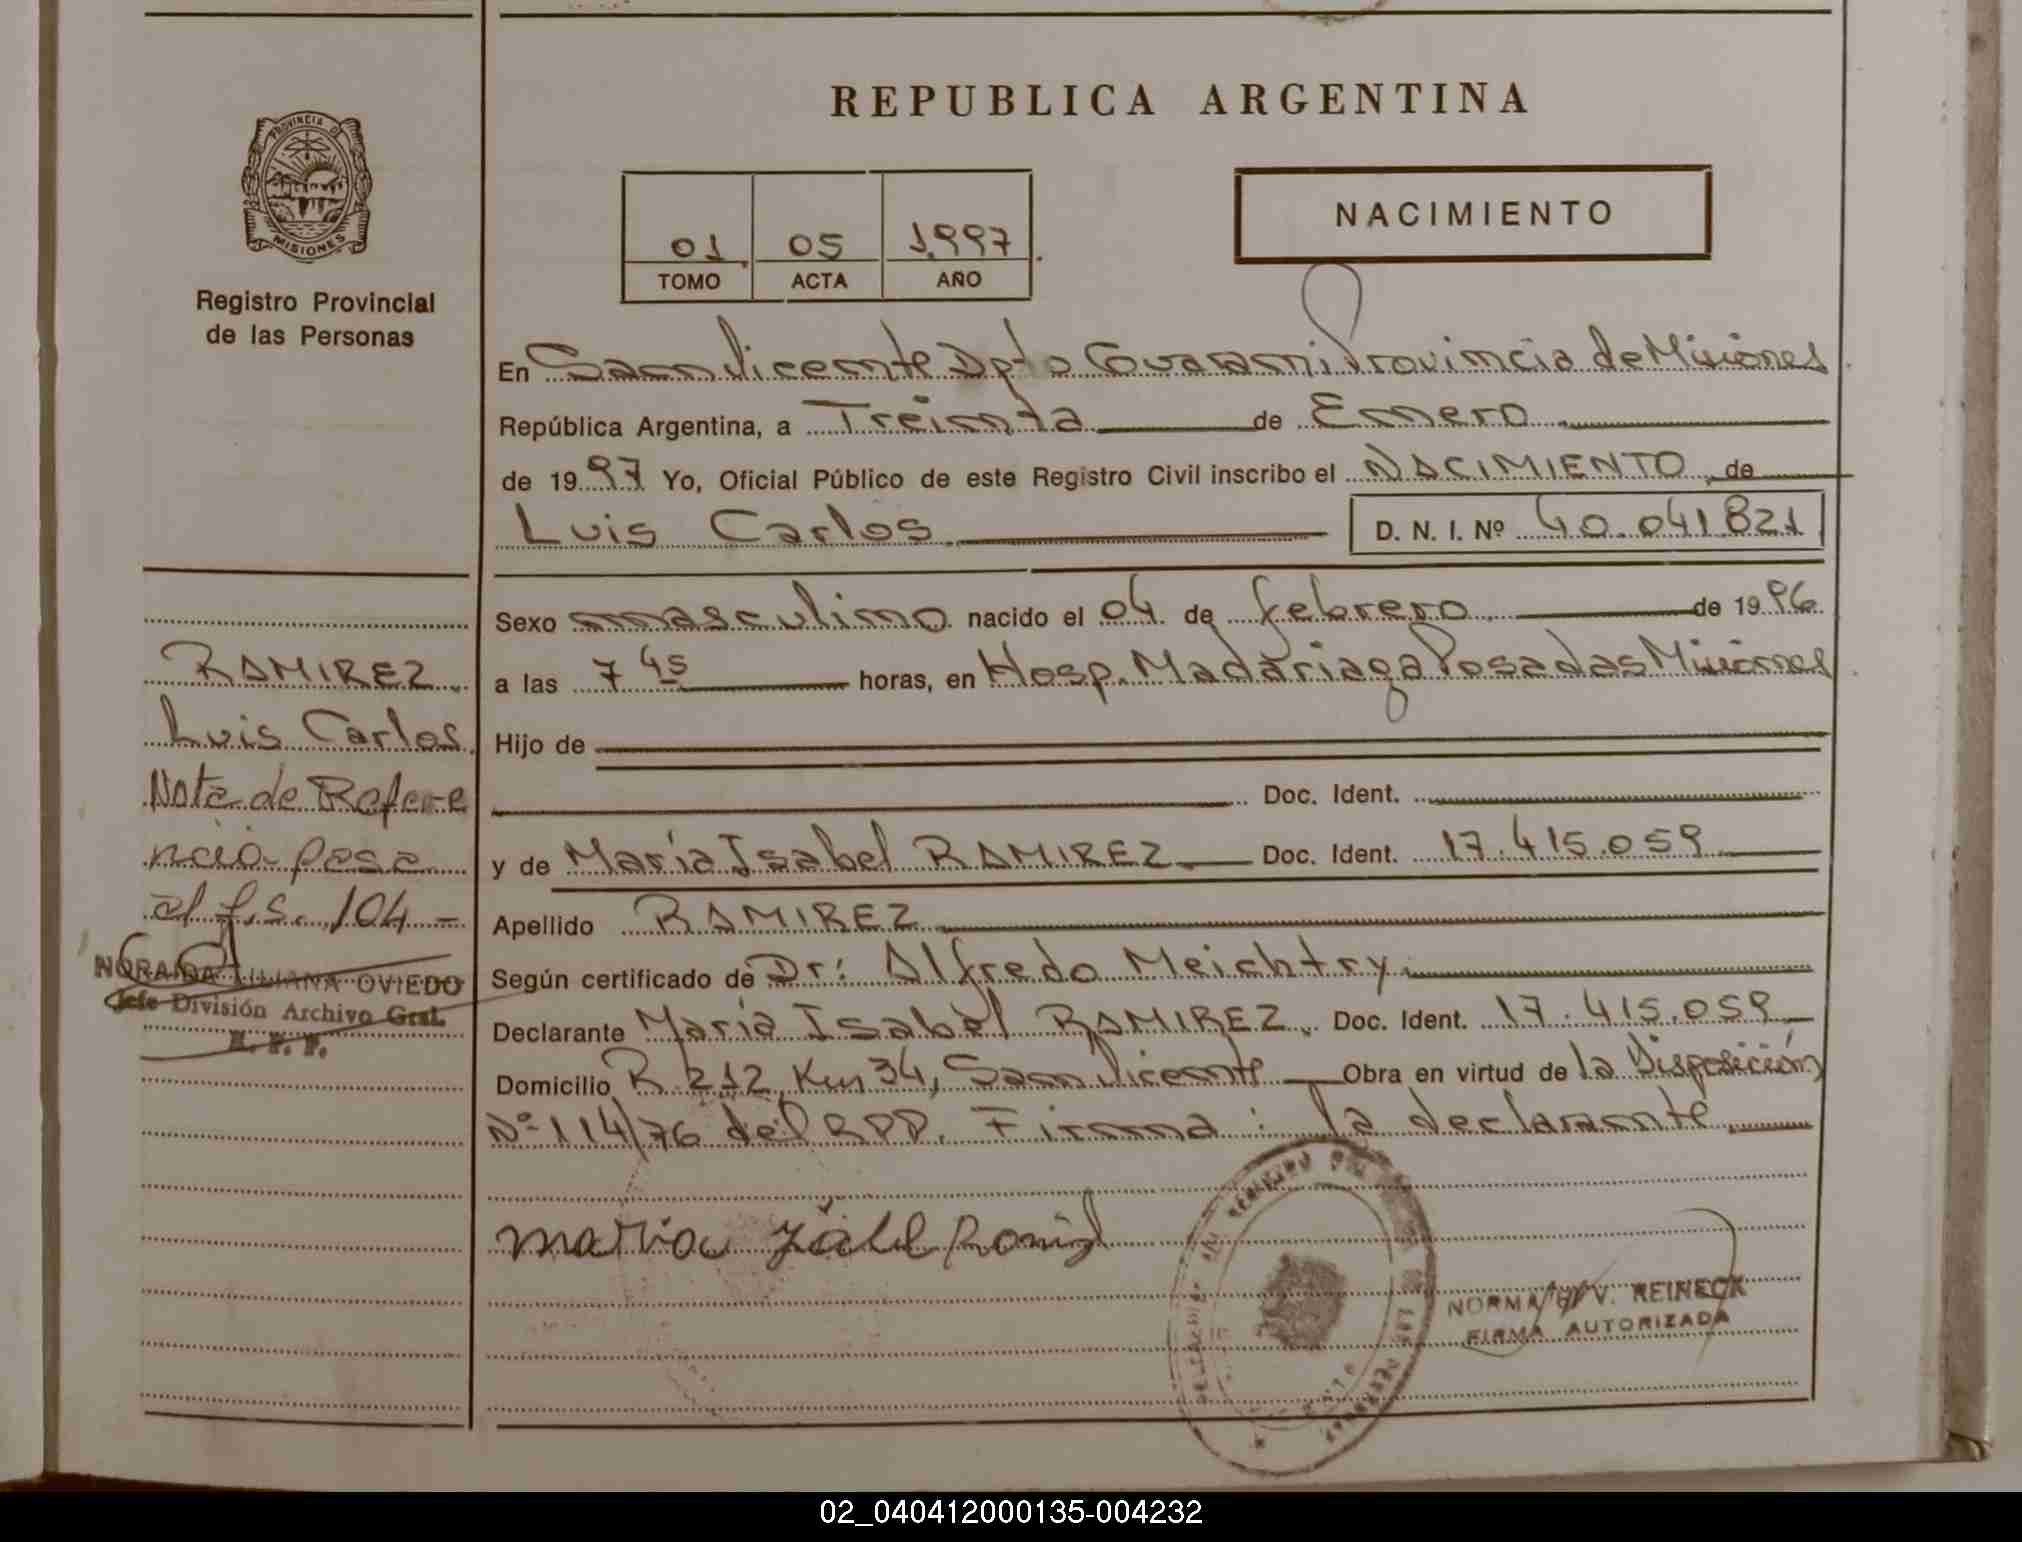 REPUBLICA ARGENTINA
PROVINCIA DE
MISIONES
Registro Provincial
de las Personas
01 05 1.997
TOMO ACTA AÑO
NACIMIENTO
En San Vicente Dpto Guarani Provincia de Misiones
República Argentina, a Treinta de Enero
de 1997 Yo, Oficial Público de este Registro Civil inscribo el NACIMIENTO de
Luis Carlos D. N. I. Nº 40.041.821
Sexo masculino nacido el 04 de febrero de 1996
a las 7 45 horas, en Hosp. Madariaga Posadas Misiones
Hijo de
Doc. Ident.
y de María Isabel RAMIREZ Doc. Ident. 17.415.059
Apellido RAMIREZ
Según certificado de Dr: Alfredo Meichtry
Declarante María Isabel RAMIREZ Doc. Ident. 17.415.059
Domicilio R 212 Km 34, San Vicente Obra en virtud de la Disposición
Nº 114/76 del RPP. Firma: la declarante
RAMIREZ
Luis Carlos
Nota de Refere
ncia pasa
al f.s. 104 -
NORAIDA LILIANA OVIEDO
Jefe División Archivo Gral.
R. P. P.
Maria
NORMA V. REINECK
FIRMA AUTORIZADA
02_040412000135-004232